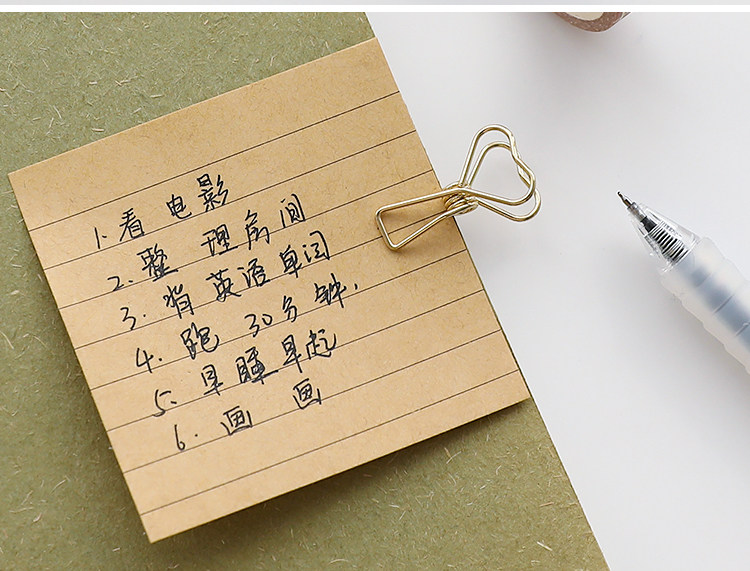 1.看电影
2.整理房间
3.背英语单词
4.跑30分钟.
5.早睡早起
6.画画